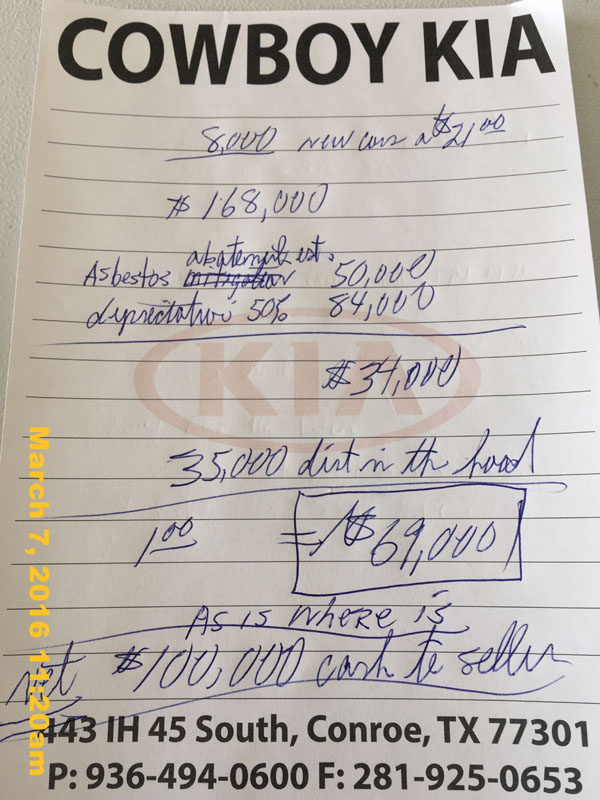 COWBOY KIA
8,000 new cons a $21.00
$ 168,000
abatement est.
Asbestos 50,000
depreciation 50% 84,000
$34,000
KIA
35,000 dirt in the hood
1.00 = $69,000
As is where is
Net $100,000 cash to seller
443 IH 45 South, Conroe, TX 77301
P: 936-494-0600 F: 281-925-0653
March 7, 2016 11:20am